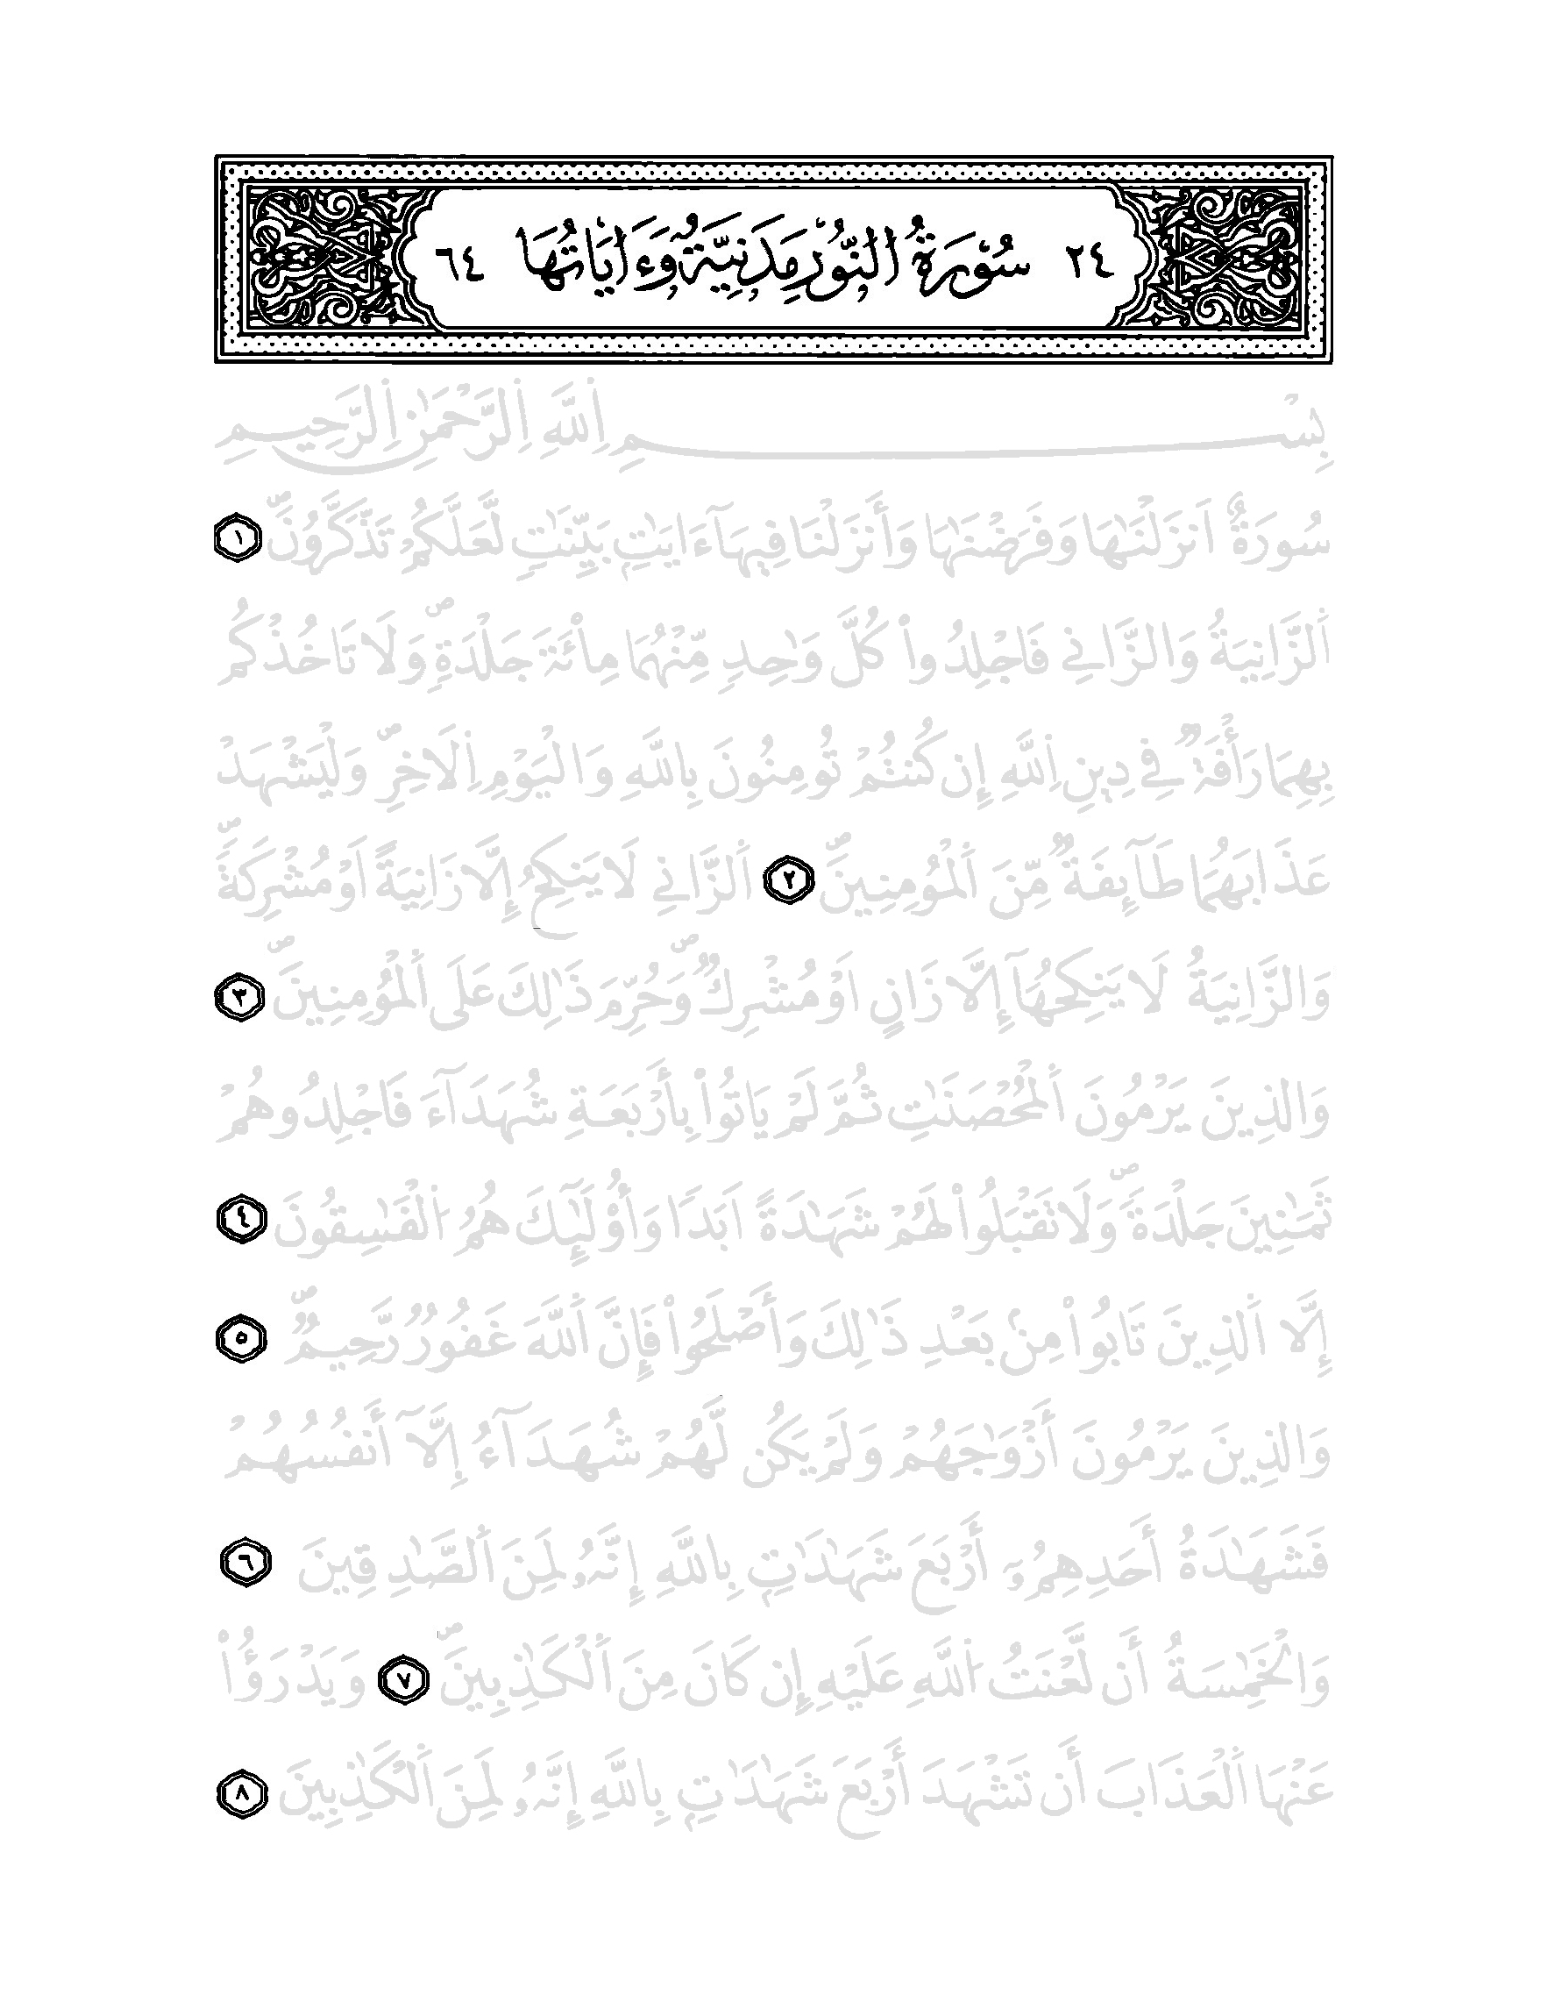 ٢٤ سُورَةُ النُّورِ مَدَنِيَّةٌ وَءَايَاتُهَا ٦٤
بِسْمِ اِ۬للَّهِ اِ۬لرَّحْمَٰنِ اِ۬لرَّحِيمِ
سُورَةٌ اَنزَلْنَٰهَا وَفَرَضْنَٰهَا وَأَنزَلْنَا فِيهَآ ءَايَٰتِۢ بَيِّنَٰتٖ لَّعَلَّكُمْ تَذَّكَّرُونَۖ ١
اَ۬لزَّانِيَةُ وَالزَّانِے فَاجْلِدُواْ كُلَّ وَٰحِدٖ مِّنْهُمَا مِاْئَةَ جَلْدَةٖۖ وَلَا تَاخُذْكُم
بِهِمَا رَأْفَةٞ فِے دِينِ اِ۬للَّهِ إِن كُنتُمْ تُومِنُونَ بِاللَّهِ وَالْيَوْمِ اِ۬لَاخِرِۖ وَلْيَشْهَدْ
عَذَابَهُمَا طَآئِفَةٞ مِّنَ اَ۬لْمُومِنِينَۖ ٢ اَ۬لزَّانِے لَا يَنكِحُ إِلَّا زَانِيَةً اَوْ مُشْرِكَةٗۖ
وَالزَّانِيَةُ لَا يَنكِحُهَآ إِلَّا زَانٍ اَوْ مُشْرِكٞۖ وَحُرِّمَ ذَٰلِكَ عَلَى اَ۬لْمُومِنِينَۖ ٣
وَالذِينَ يَرْمُونَ اَ۬لْمُحْصَنَٰتِ ثُمَّ لَمْ يَاتُواْ بِأَرْبَعَةِ شُهَدَآءَ فَاجْلِدُوهُمْ
ثَمَٰنِينَ جَلْدَةٗۖ وَلَا تَقْبَلُواْ لَهُمْ شَهَٰدَةً اَبَدٗا وَأُوْلَٰٓئِكَ هُمُ اُ۬لْفَٰسِقُونَ ٤
إِلَّا اَ۬لذِينَ تَابُواْ مِنۢ بَعْدِ ذَٰلِكَ وَأَصْلَحُواْ فَإِنَّ اَ۬للَّهَ غَفُورٞ رَّحِيمٞۖ ٥
وَالذِينَ يَرْمُونَ أَزْوَٰجَهُمْ وَلَمْ يَكُن لَّهُمْ شُهَدَآءُ اِلَّآ أَنفُسُهُمْ
فَشَهَٰدَةُ أَحَدِهِمُۥٓ أَرْبَعَ شَهَٰدَٰتِۢ بِاللَّهِ إِنَّهُۥ لَمِنَ اَ۬لصَّٰدِقِينَ ٦
وَالْخَٰمِسَةُ أَن لَّعْنَتُ اُ۬للَّهِ عَلَيْهِ إِن كَانَ مِنَ اَ۬لْكَٰذِبِينَۖ ٧ وَيَدْرَؤُاْ
عَنْهَا اَ۬لْعَذَابَ أَن تَشْهَدَ أَرْبَعَ شَهَٰدَٰتِۢ بِاللَّهِ إِنَّهُۥ لَمِنَ اَ۬لْكَٰذِبِينَ ٨